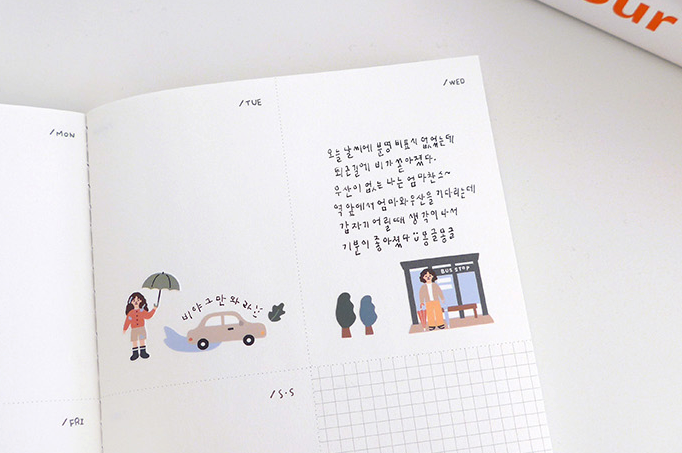 our
/MON
/TUE
/WED
오늘 날씨에 분명 비표시 없었는데
퇴근길에 비가 쏟아졌다.
우산이 없는 나는 엄마찬스~
역 앞에서 엄마와 우산을 기다리는데
갑자기 어릴때 생각이 나서
기분이 좋아졌다 몽글몽글
BUS STOP
비야 그만 와라
/FRI
/S·S